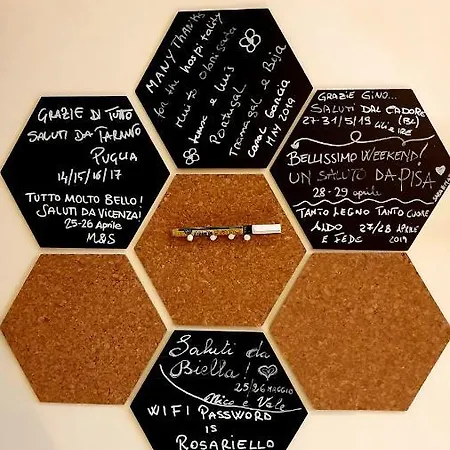 MANY THANKS
for the hospitality
Portugal
MAY 2019
GRAZIE DI TUTTO
SALUTI DA TARANTO
PUGLIA
14/15/16/17
TUTTO MOLTO BELLO!
SALUTI DA VICENZA!
25-26 Aprile
M&S
GRAZIE GINO...
SALUTI DAL CADORE
27-31/5/19 (BL)
BELLISSIMO WEEKEND!
UN SALUTO DA PISA
28-29 aprile
TANTO LEGNO TANTO CUORE
27/28 APRILE
E FEDE 2019
Saluti da
Biella!
25/26 MAGGIO
Mico e Vale
WIFI PASSWORD
IS
ROSARIELLO